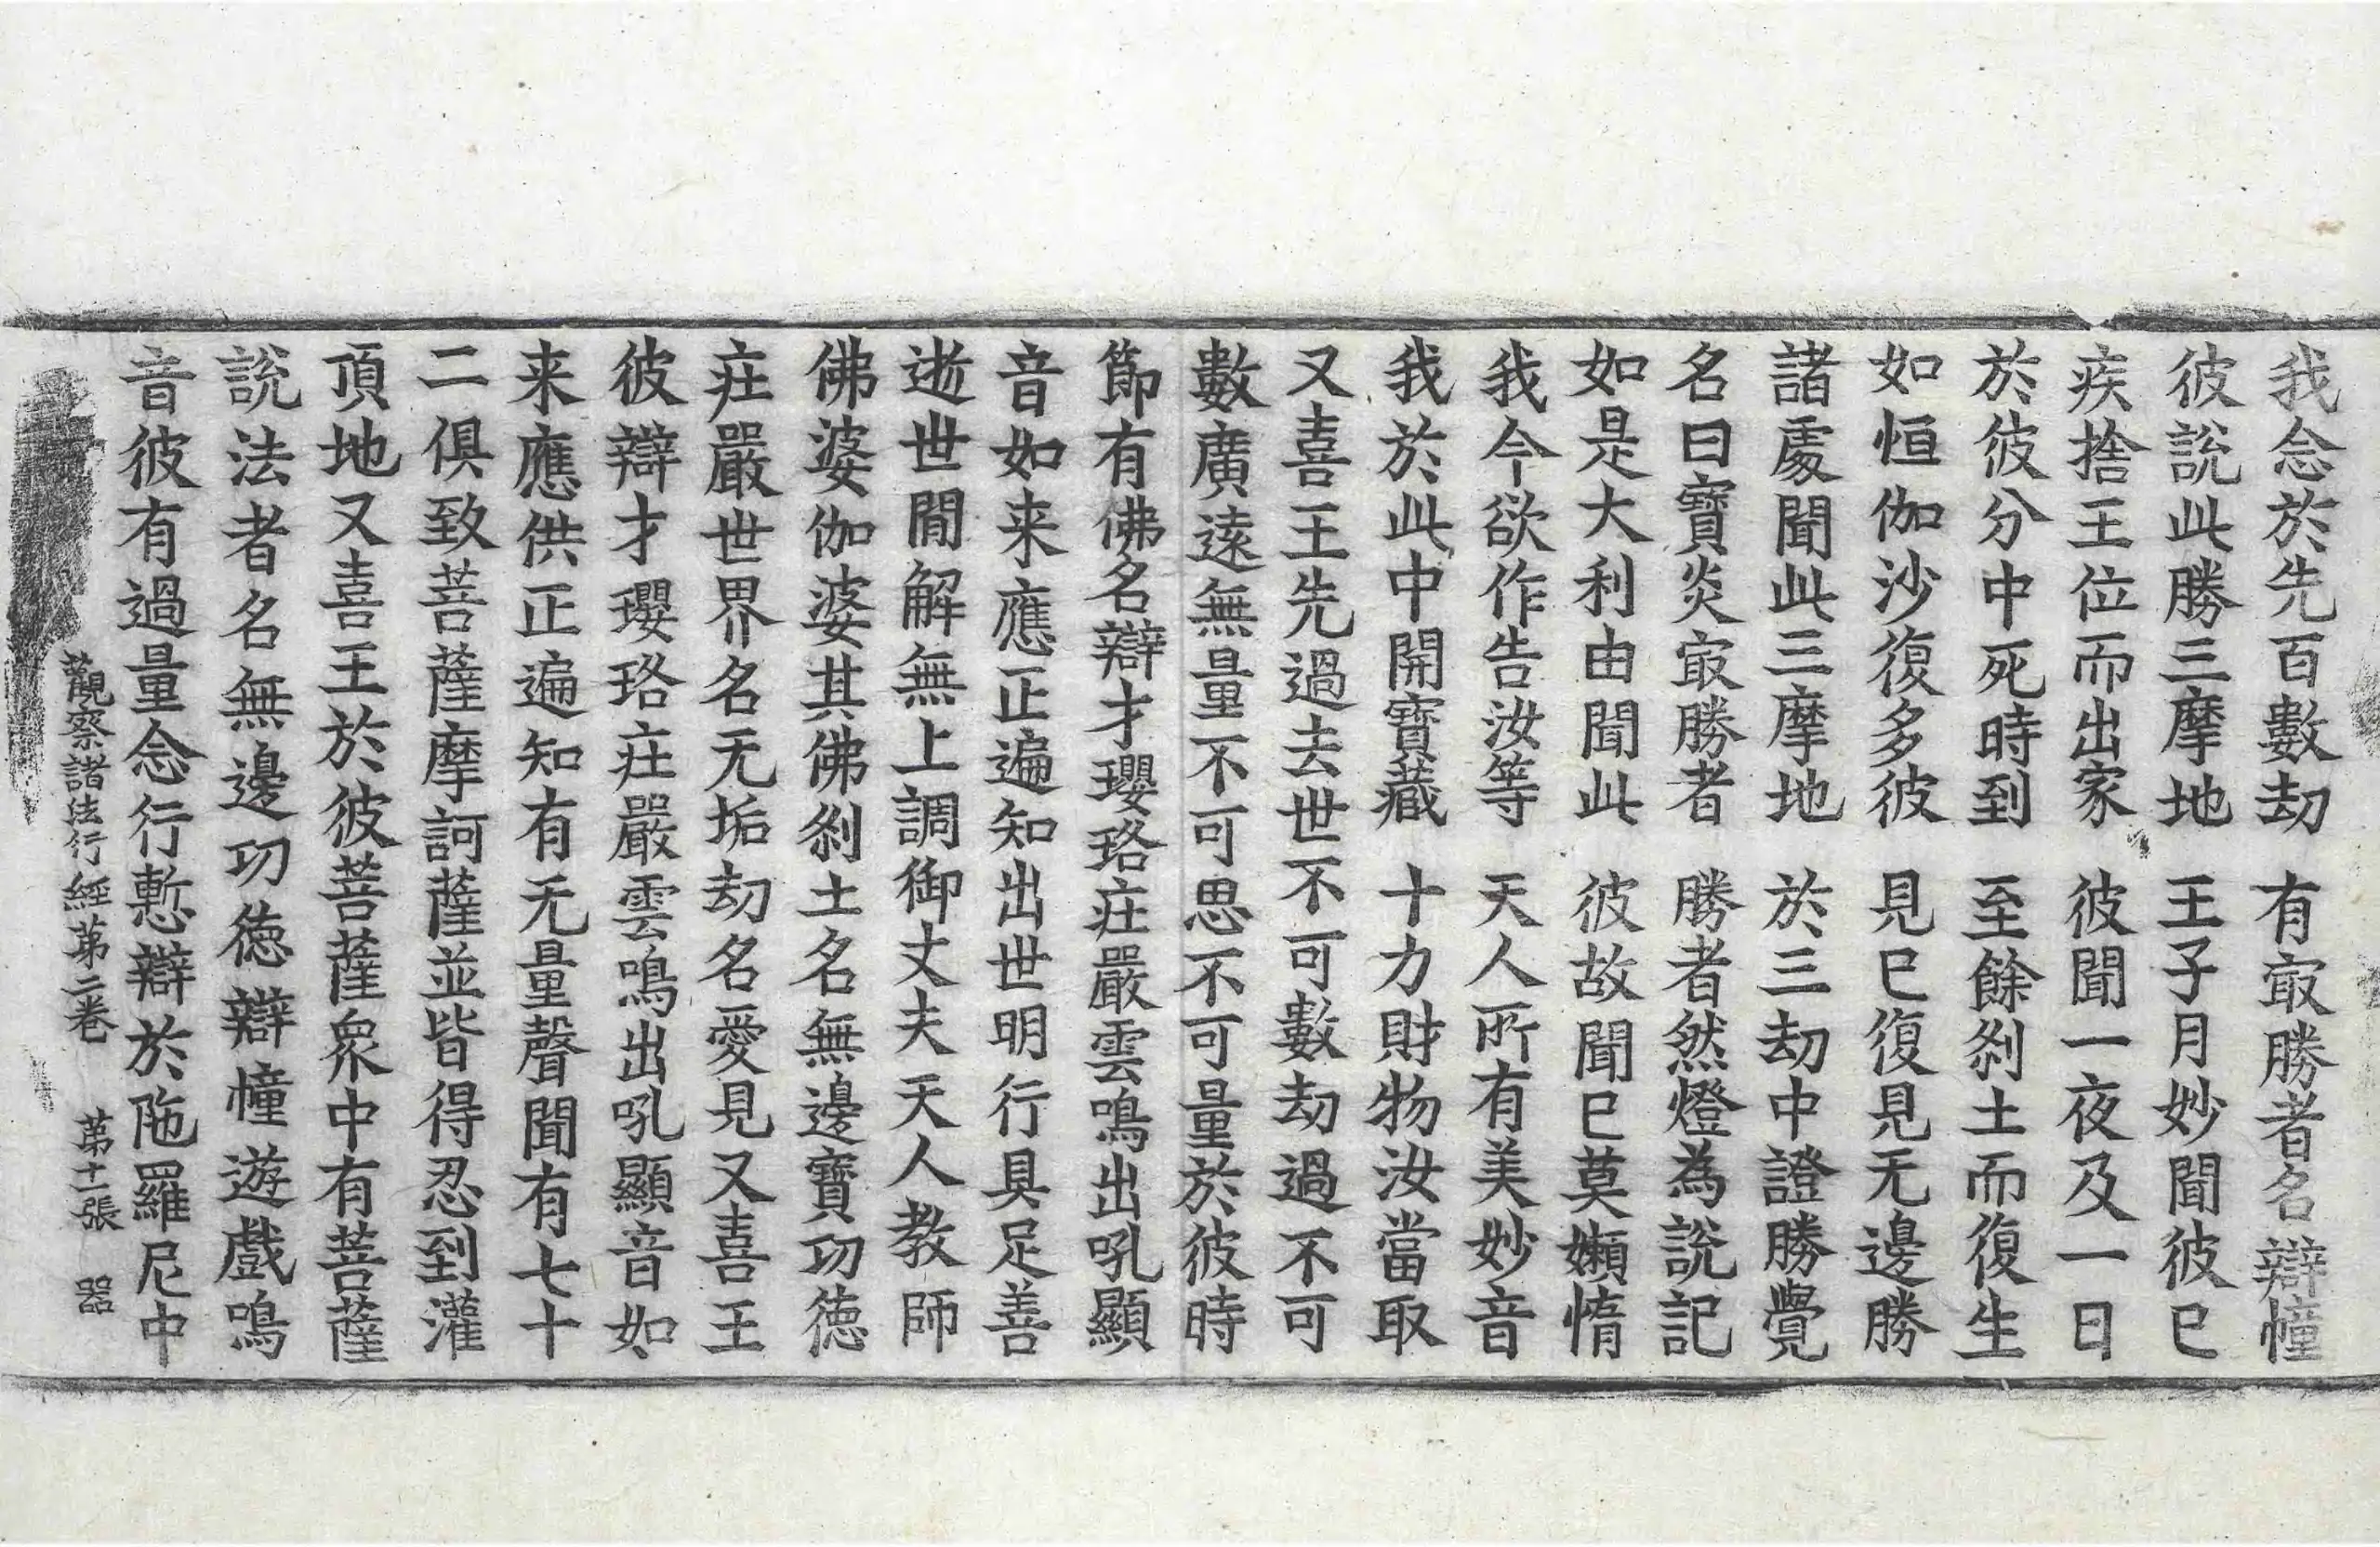 我念於先百數劫　有㝡勝者名辯幢
彼說此勝三摩地　王子月妙聞彼已
疾捨王位而出家　彼聞一夜及一日
於彼分中死時到　至餘剎土而復生
如恒伽沙復多彼　見已復見无邊勝
諸處聞此三摩地　於三劫中證勝覺
名曰寶炎㝡勝者　勝者然燈為說記
如是大利由聞此　彼故聞已莫嬾惰
我今欲作告汝等　天人所有美妙音
我於此中開寶藏　十力財物汝當取
又喜王先過去世不可數劫過不可
數廣遠無量不可思不可量於彼時
節有佛名辯才瓔珞莊嚴雲鳴出吼顯
音如来應正遍知出世明行具足善
逝世間解無上調御丈夫天人教師
佛婆伽婆其佛剎土名無邊寶功德
莊嚴世界名无垢劫名愛見又喜王
彼辯才瓔珞莊嚴雲鳴出吼顯音如
来應供正遍知有无量聲聞有七十
二俱致菩薩摩訶薩並皆得忍到灌
頂地又喜王於彼菩薩衆中有菩薩
說法者名無邊功德辯幢遊戲鳴
音彼有過量念行慙辯於陁羅尼中
觀察諸法行經苐二卷　苐十一張　器